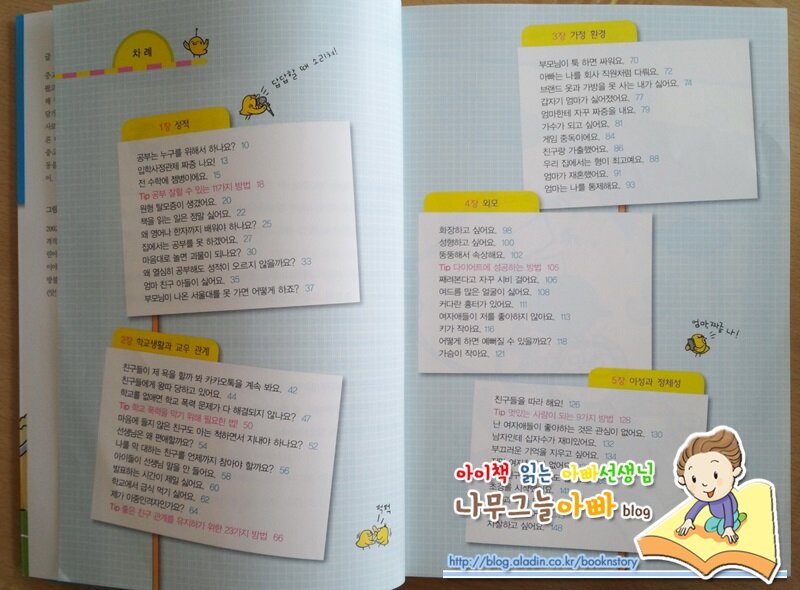 차례
답답할 때 소리쳐!
1장 성적
공부는 누구를 위해서 하나요? 10
입학사정관제 짜증 나요! 13
전 수학에 젬병이에요. 15
Tip 공부 잘할 수 있는 11가지 방법 18
원형 탈모증이 생겼어요. 20
책을 읽는 일은 정말 싫어요. 22
왜 영어나 한자까지 배워야 하나요? 25
집에서는 공부를 못 하겠어요. 27
마음대로 놀면 괴물이 되나요? 30
왜 열심히 공부해도 성적이 오르지 않을까요? 33
엄마 친구 아들이 싫어요. 35
부모님이 나온 서울대를 못 가면 어떻게 하죠? 37
2장 학교생활과 교우 관계
친구들이 제 욕을 할까 봐 카카오톡을 계속 봐요. 42
친구들에게 왕따 당하고 있어요. 44
학교를 없애면 학교 폭력 문제가 다 해결되지 않나요? 47
Tip 학교 폭력을 막기 위해 필요한 법! 50
마음에 들지 않은 친구도 아는 척하면서 지내야 하나요? 52
선생님은 왜 편애할까요? 54
나를 막 대하는 친구를 언제까지 참아야 할까요? 56
아이들이 선생님 말을 안 들어요. 58
발표하는 시간이 제일 싫어요. 60
학교에서 급식 먹기 싫어요. 62
제가 이중인격자인가요? 64
Tip 좋은 친구 관계를 유지하기 위한 23가지 방법 66
3장 가정 환경
부모님이 툭 하면 싸워요. 70
아빠는 나를 회사 직원처럼 다뤄요. 72
브랜드 옷과 가방을 못 사는 내가 싫어요. 74
갑자기 엄마가 싫어졌어요. 77
엄마한테 자꾸 짜증을 내요. 79
가수가 되고 싶어요. 81
게임 중독이에요. 84
친구랑 가출했어요. 86
우리 집에서는 형이 최고예요. 88
엄마가 재혼했어요. 91
엄마는 나를 통제해요. 93
4장 외모
화장하고 싶어요. 98
성형하고 싶어요. 100
뚱뚱해서 속상해요. 102
Tip 다이어트에 성공하는 방법 105
째려본다고 자꾸 시비 걸어요. 106
여드름 많은 얼굴이 싫어요. 108
커다란 흉터가 있어요. 111
여자애들이 저를 좋아하지 않아요. 113
키가 작아요. 116
어떻게 하면 예뻐질 수 있을까요? 118
가슴이 작아요. 121
엄마 짜증 나!
5장 이성과 정체성
친구들을 따라 해요! 126
Tip 멋있는 사람이 되는 9가지 방법 128
난 여자애들이 좋아하는 것은 관심이 없어요. 130
남자인데 십자수가 재미있어요. 132
부끄러운 기억을 지우고 싶어요. 134
148
아이책 읽는 아빠선생님
나무그늘아빠 blog
http://blog.aladin.co.kr/booknstory